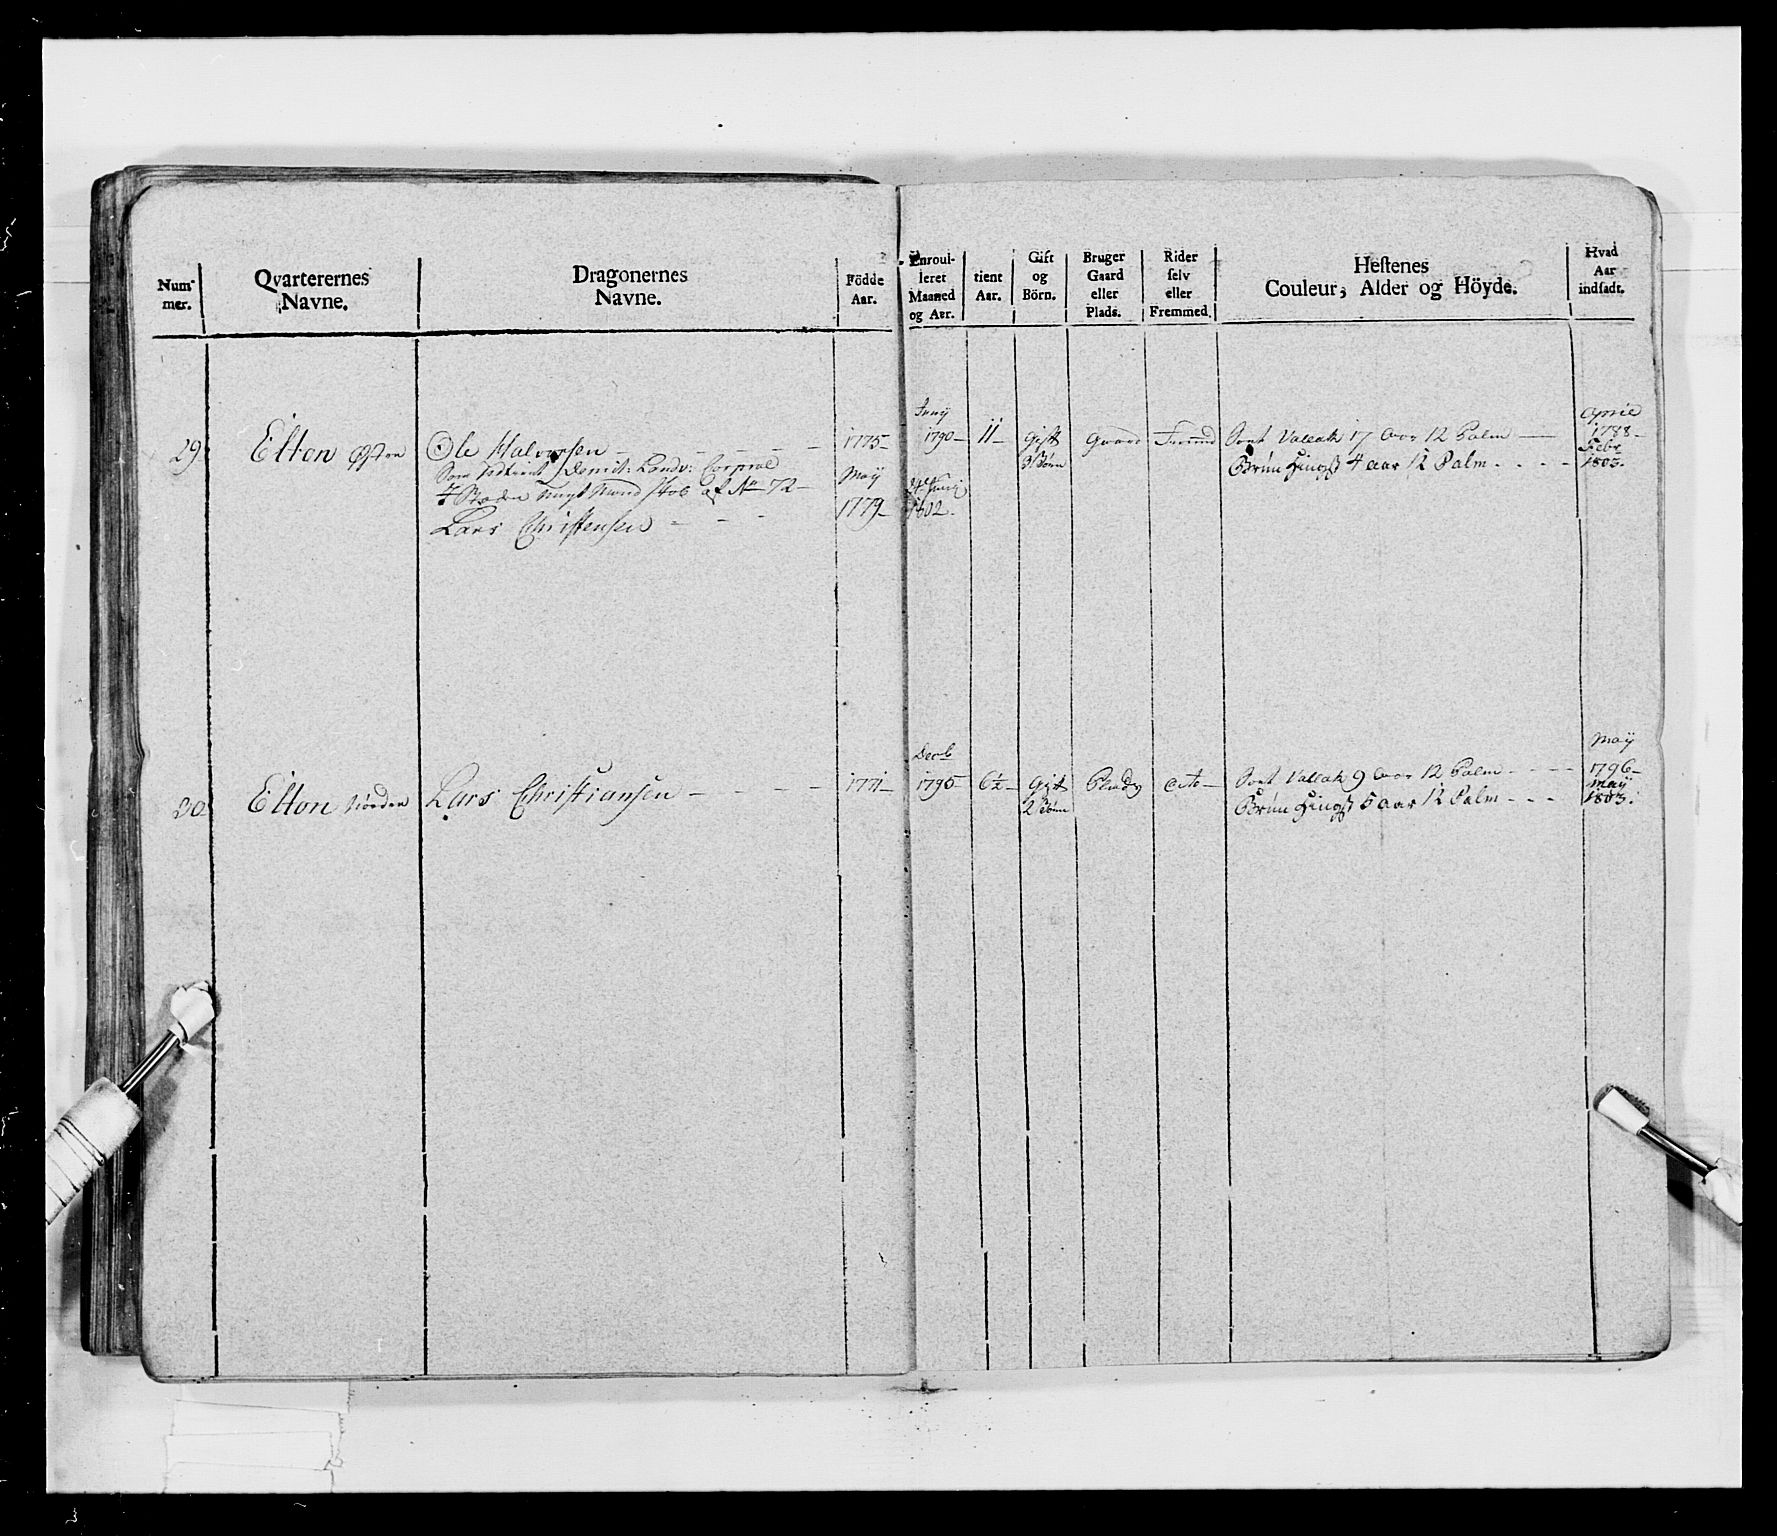 Num-
mer.
Qvarterernes
Navne.
Dragonernes
Navne.
Födde
Aar.
Enroul-
leret
Maaned
og Aar.
tient
Aar.
Gift
og
Börn.
Bruger
Gaard
eller
Plads.
Rider
selv
eller
Fremmed.
Hestenes
Couleur, Alder og Höyde.
Hvad
Aar
indsadt.
29
Elton Østre
Ole Halvorsen
1775
Juny
1790
11
Gift
3 Børn
Gaard
Fremd
Sort Vallak 17 Aar 12 Palm
April
1788
Som Landv: Corporal
af No 72
Lars Christensen
May
1779
Junij
1802
Brun Hingst 4 aar 12 Palm
Febr
1803.
30
Elton Nordre
Lars Christiansen
1771
Decb
1795
6½
Gift
2 Børn
Plads
dito
Sort Vallak 9 Aar 12 Palm
May
1796
Brun Hingst 5 aar 12 Palm
May
1803.